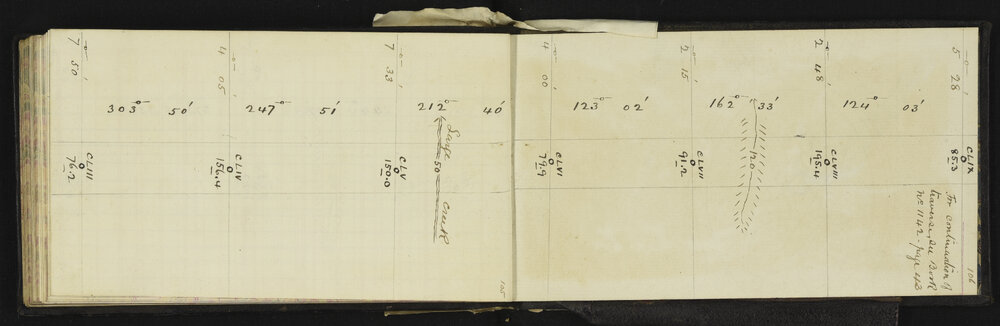 7° 50'
303° 50'
CLIII
76.2
4° 05'
247° 51'
CLIV
156.4
7° 33'
212° 40'
CLV
150.0
Large 50 creek
105
4° 00'
123° 02'
CLVI
79.9
2° 15'
162° 33'
CLVII
91.2
120
2° 48'
124° 03'
CLVIII
195.4
5° 28'
CLIX
85.3
For continuation of
traverse, see Book
No 1142 - page 43
106